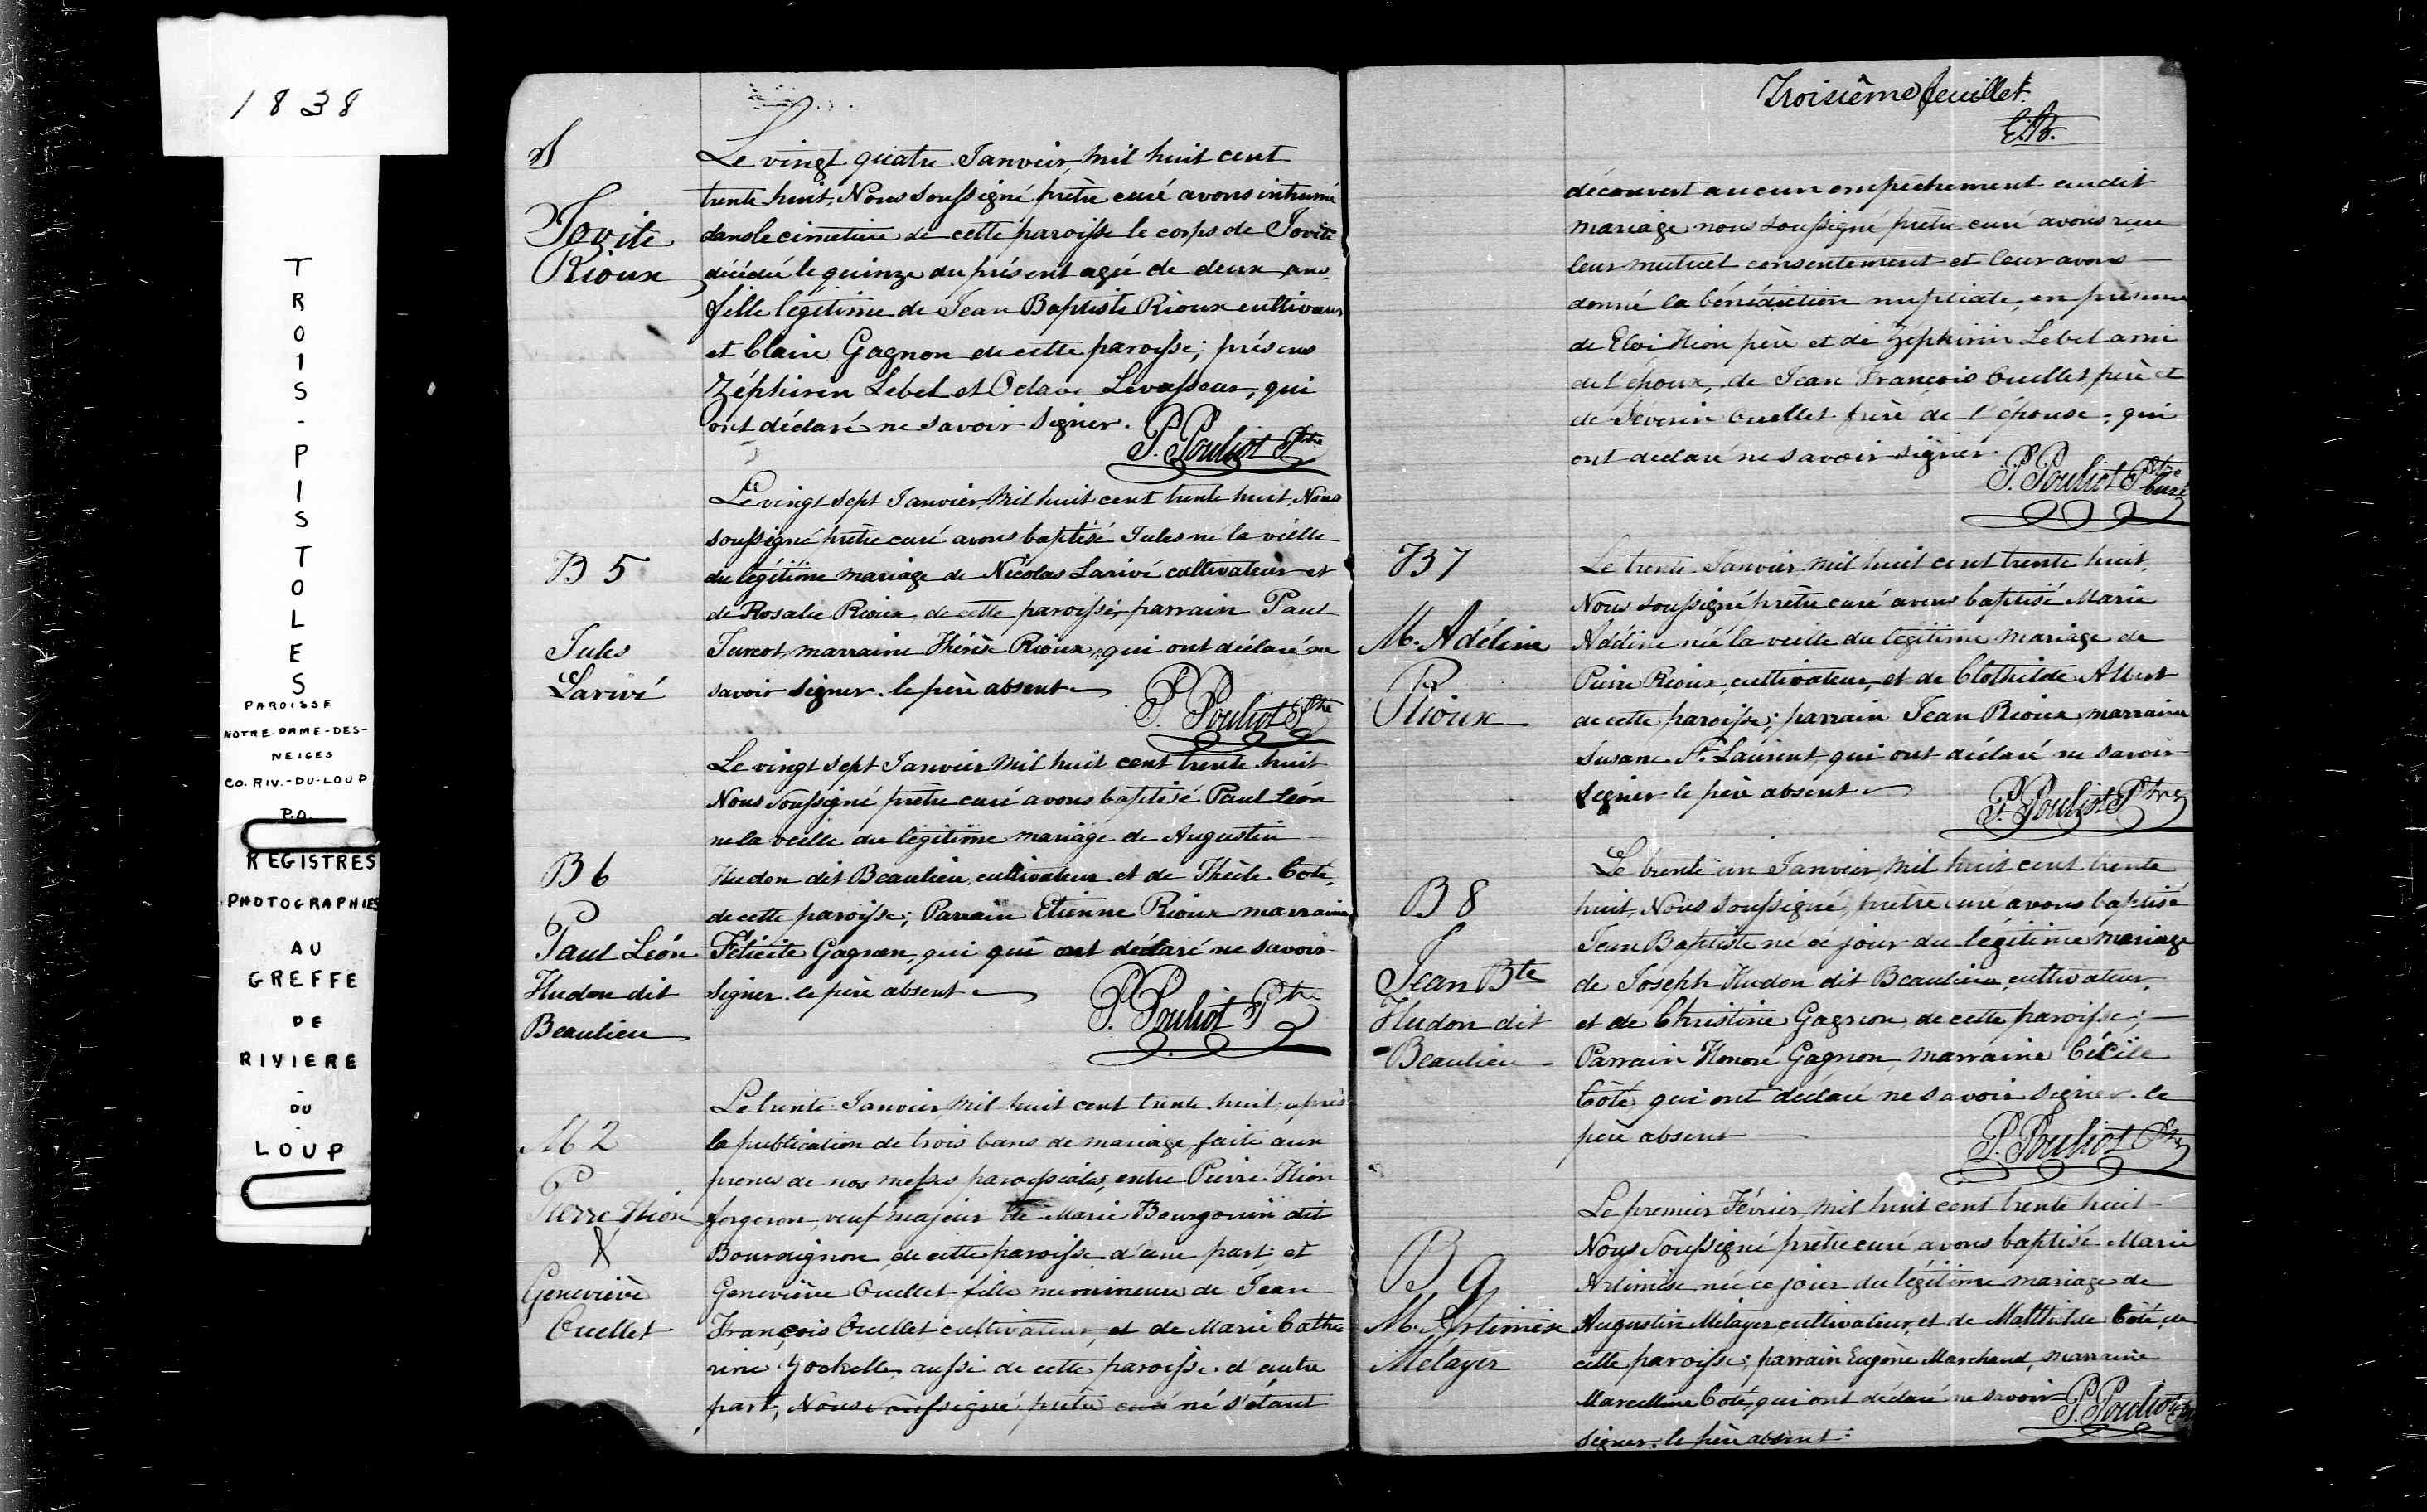 1838
TROIS-PISTOLES
PAROISSE
NOTRE-DAME-DES-
NEIGES
CO. RIV.-DU-LOUP
P.Q.
REGISTRES
PHOTOGRAPHIES
AU
GREFFE
DE
RIVIERE
-
DU
-
LOUP
S
Jovite
Rioux
Le vingt quatre Janvier mil huit cent
trente huit, Nous soussigné prêtre curé avons inhumé
dans le cimetière de cette paroisse le corps de Jovite
décédée le quinze du présent agée de deux ans
fille légitime de Jean Baptiste Rioux cultivateur
et Claire Gagnon de cette paroisse; présens
Zéphiren Lebel et Octave Levasseur, qui
ont déclaré ne savoir signer.
P. Pouliot Ptre
B 5
Jules
Larivé
Le vingt sept Janvier mil huit cent trente huit, Nous
soussigné prêtre curé avons baptisé Jules né la veille
du légitime mariage de Nicolas Larivé cultivateur et
de Rosalie Rioux de cette paroisse, parrain Paul
Turcot, marraine Thérèse Rioux, qui ont déclaré ne
savoir signer. le père absent
P. Pouliot Ptre
B 6
Paul Léon
Hudon dit
Beaulieu
Le vingt sept Janvier mil huit cent trente huit
Nous soussigné prêtre curé avons baptisé Paul Léon
né la veille du légitime mariage de Augustin
Hudon dit Beaulieu, cultivateur et de Thècle Coté,
de cette paroisse; Parrain Etienne Rioux marraine
Félicité Gagnon, qui qui ont déclaré ne savoir
signer. le père absent
P. Pouliot Ptre
M 2
Pierre Hion
X
Geneviève
Ouellet
Le trente Janvier mil huit cent trente huit, après
la publication de trois bans de mariage faite aux
prones de nos messes paroissiales, entre Pierre Hion
forgeron, veuf majeur de Marie Bourgouin dit
Bourguignon de cette paroisse d'une part; et
Geneviève Ouellet fille mi mineure de Jean
François Ouellet cultivateur, et de Marie Cathe
rine Yockelle aussi de cette paroisse d'autre
part, Nous soussigné prêtre curé ne s'étant
Troisième feuillet.
E.B.
découvert aucun empêchement audit
mariage nous soussigné prêtre curé avons reçu
leur mutuel consentement et leur avons
donné la bénédiction nuptiale, en présence
de Eloi Hion père et de Zephirin Lebel ami
de l'époux, de Jean François Ouellet père et
de Séverin Ouellet frère de l'épouse; qui
ont déclaré ne savoir signer
P. Pouliot Ptre
Curé
B 7
M. Adéline
Rioux
Le trente Janvier mil huit cent trente huit.
Nous soussigné prêtre curé avons baptisé Marie
Adéline née la veille du légitime mariage de
Pierre Rioux, cultivateur, et de Clothilde Albert
de cette paroisse; parrain Jean Rioux, marraine
Susane St. Laurent, qui ont déclaré ne savoir
signer le père absent
P. Pouliot Ptre
B 8
Jean Bte
Hudon dit
Beaulieu
Le trente un Janvier, mil huit cent trente
huit, Nous soussigné, prêtre curé avons baptisé
Jean Baptiste né ce jour du légitime mariage
de Joseph Hudon dit Beaulieu, cultivateur,
et de Christine Gagnon de cette paroisse;
Parrain Honoré Gagnon, marraine Cécile
Côté, qui ont déclaré ne savoir signer. le
père absent
P. Pouliot Ptre
B 9
M. Artimise
Metayer
Le premier Février mil huit cent trente huit
Nous soussigné prêtre curé avons baptisé Marie
Artimise née ce jour du légitime mariage de
Augustin Metayer cultivateur, et de Matthilde Côté, de
cette paroisse; parrain Eugène Marchand, marraine
Marcelline Coté, qui ont déclaré ne savoir
P. Pouliot Ptre
signer. le père absent